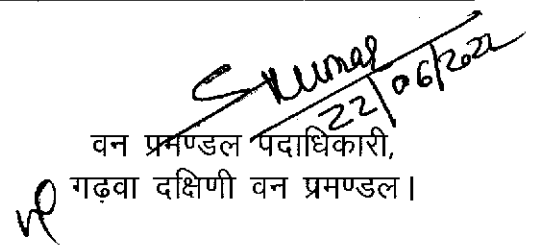 S Kumar
22/06/2022
वन प्रमण्डल पदाधिकारी,
गढ़वा दक्षिणी वन प्रमण्डल।